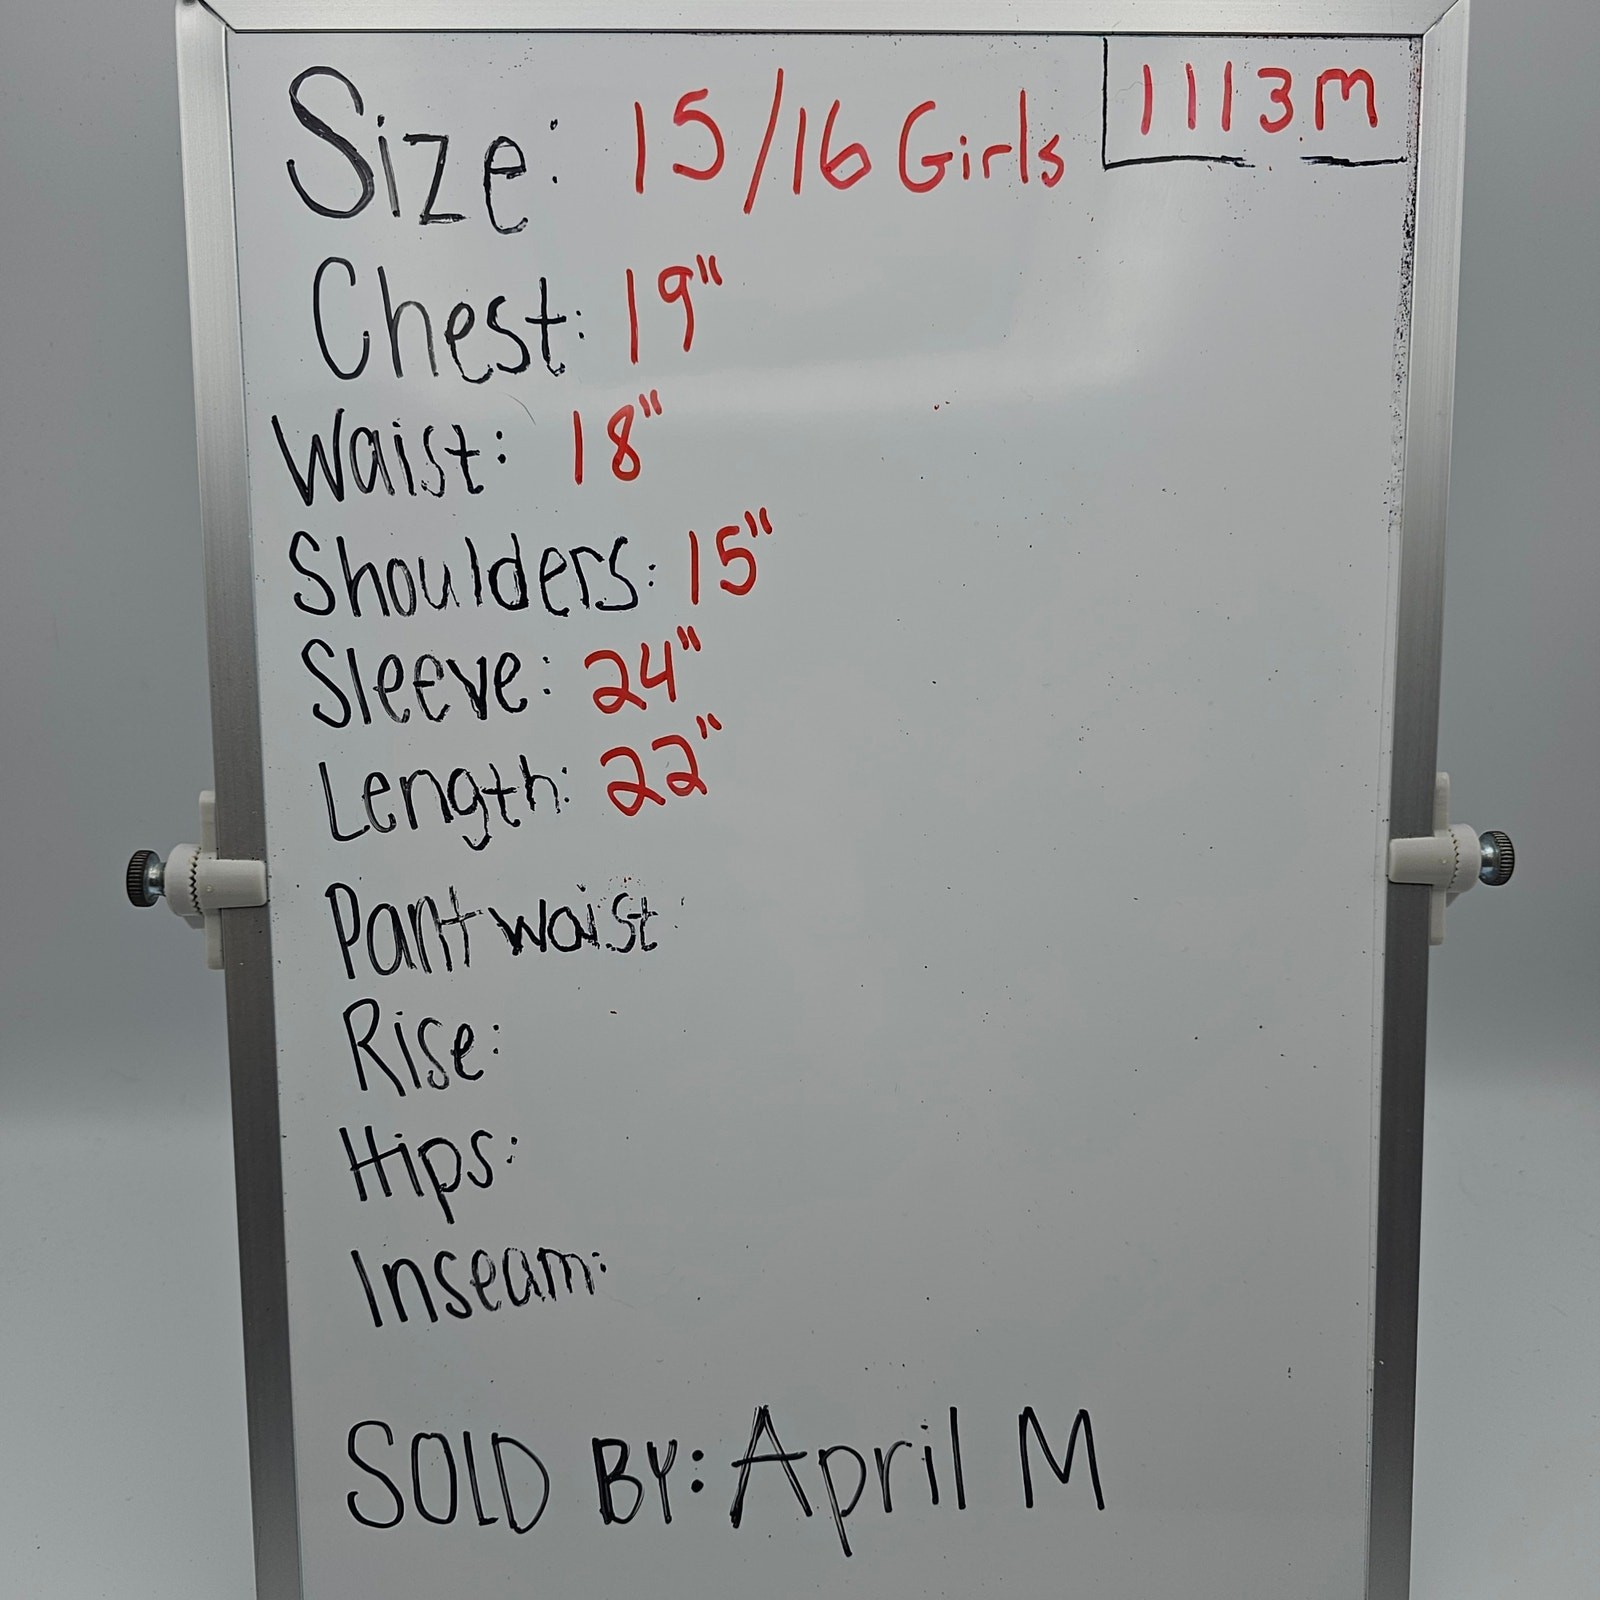 Size: 15/16 Girls
1113M
Chest: 19"
Waist: 18"
Shoulders: 15"
Sleeve: 24"
Length: 22"
Pant waist:
Rise:
Hips:
Inseam:
SOLD BY: April M